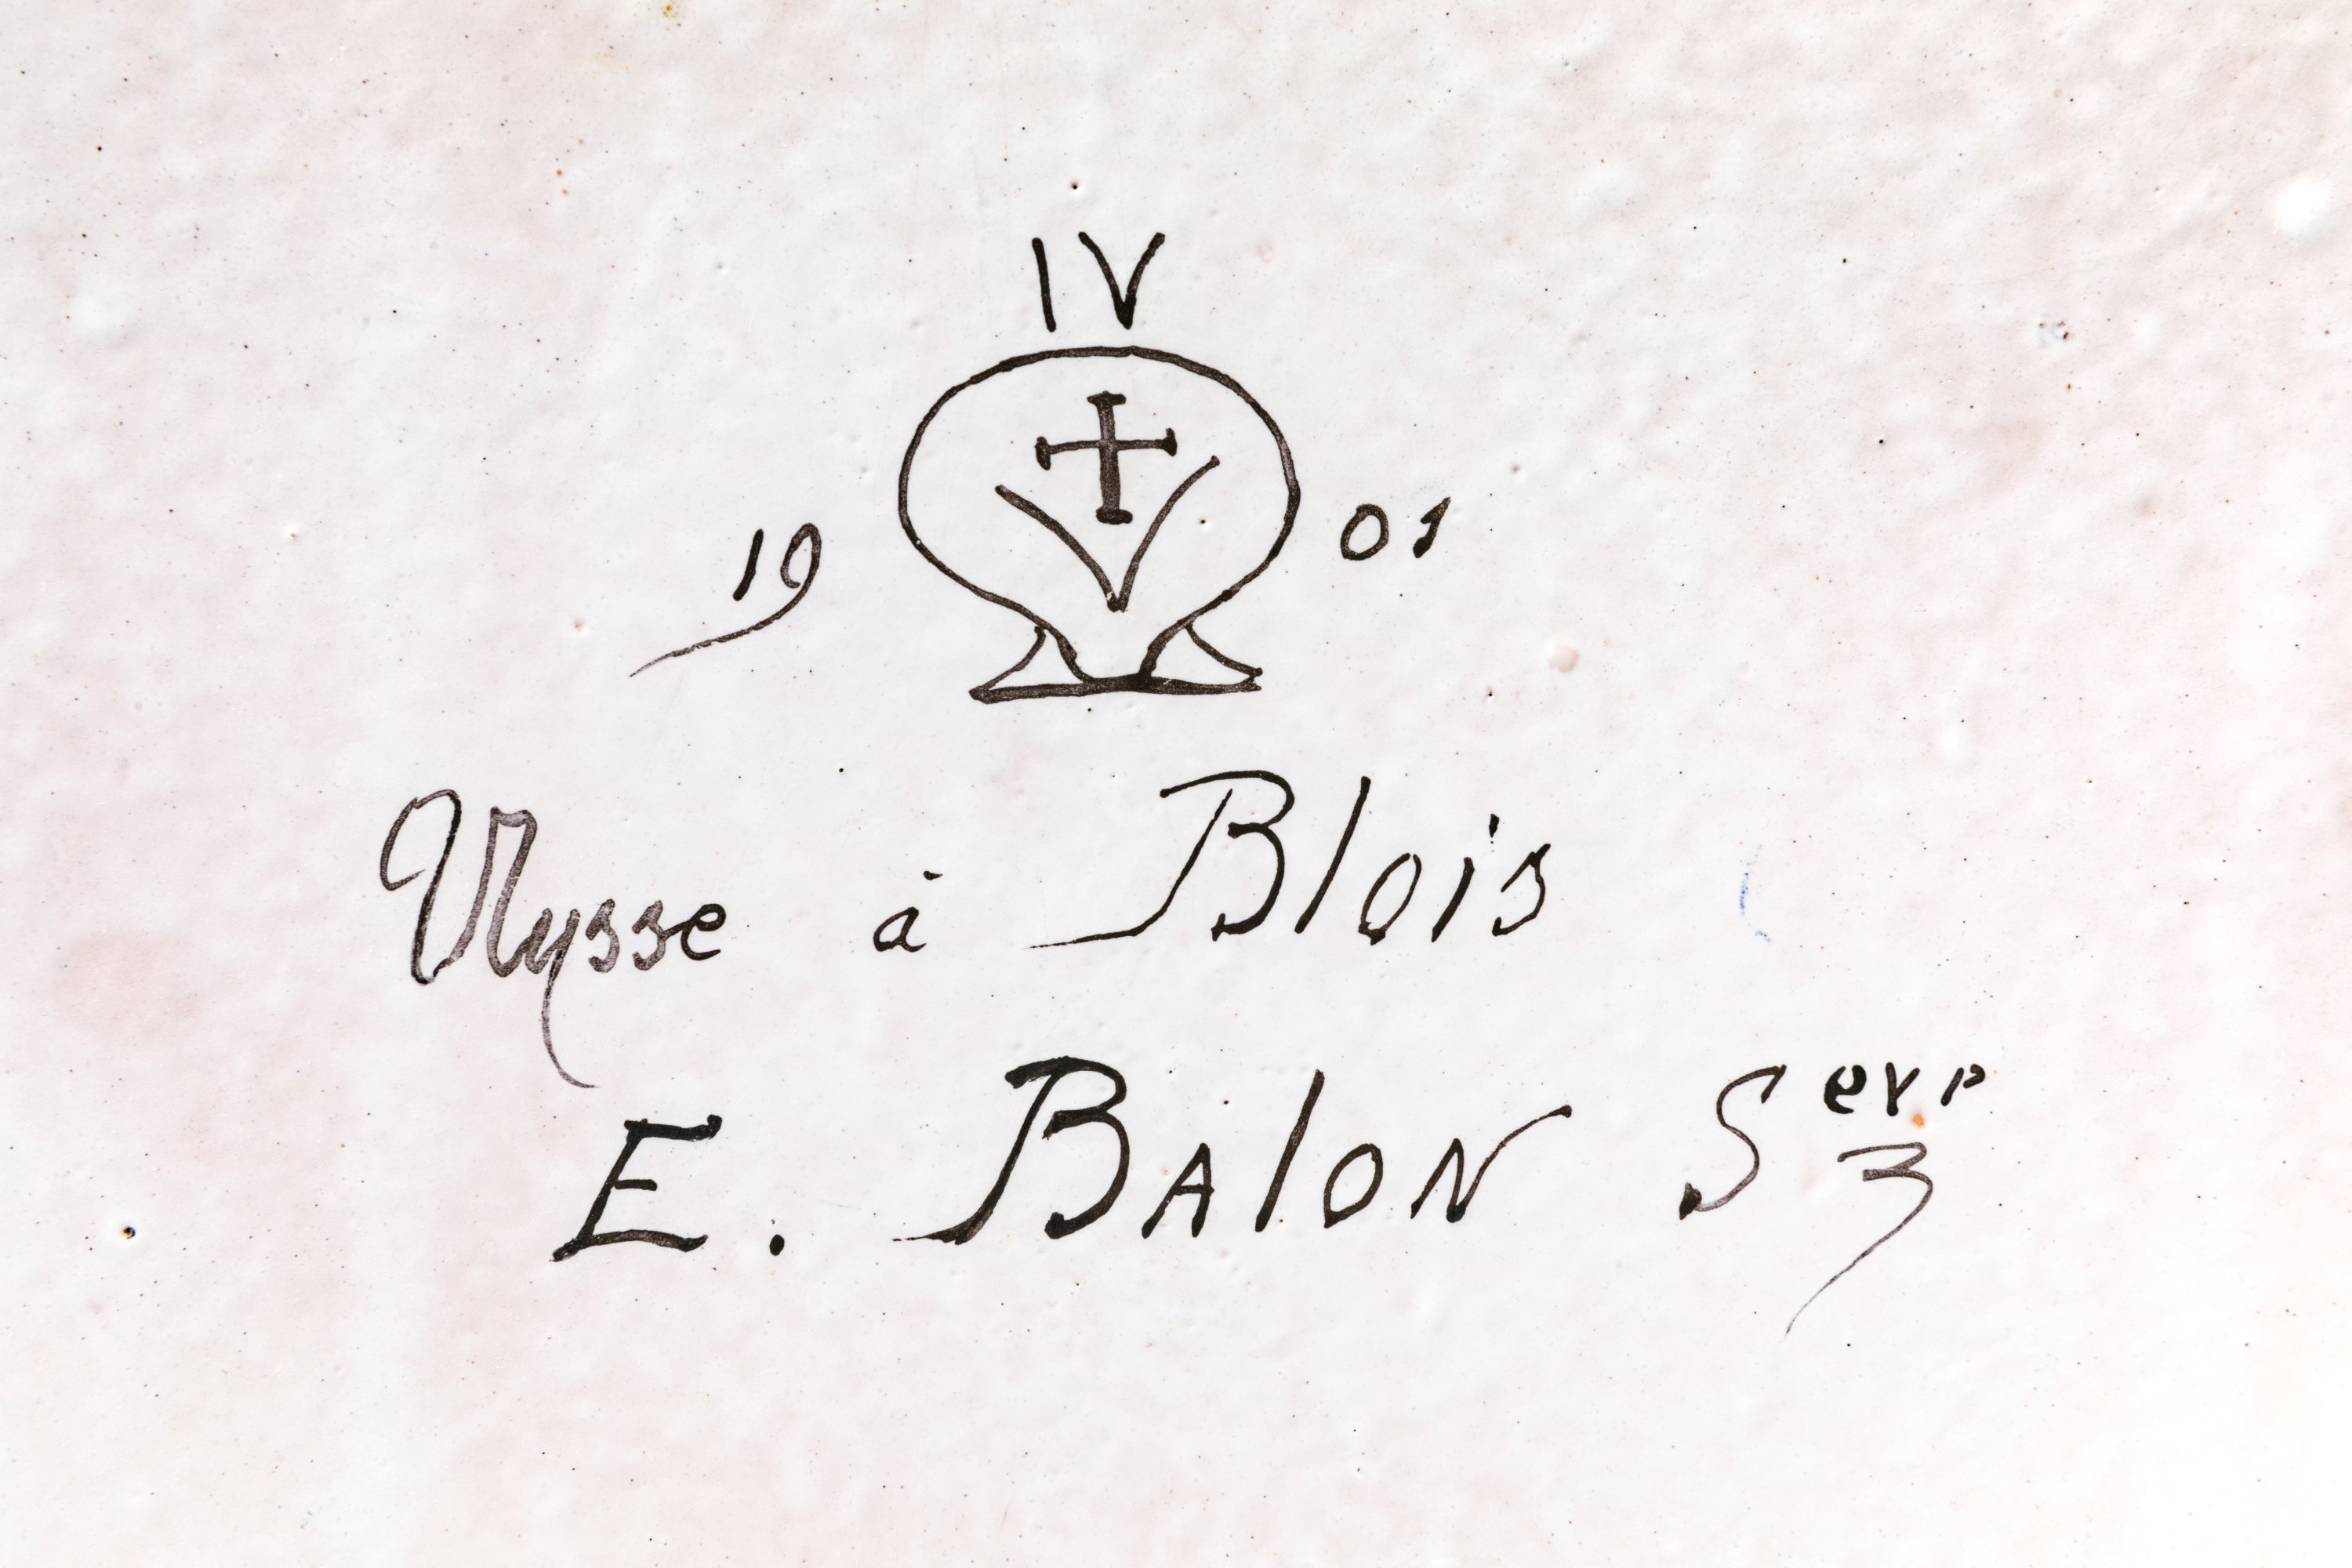 IV
19 01
Ulysse à Blois
E. BAlON Seur